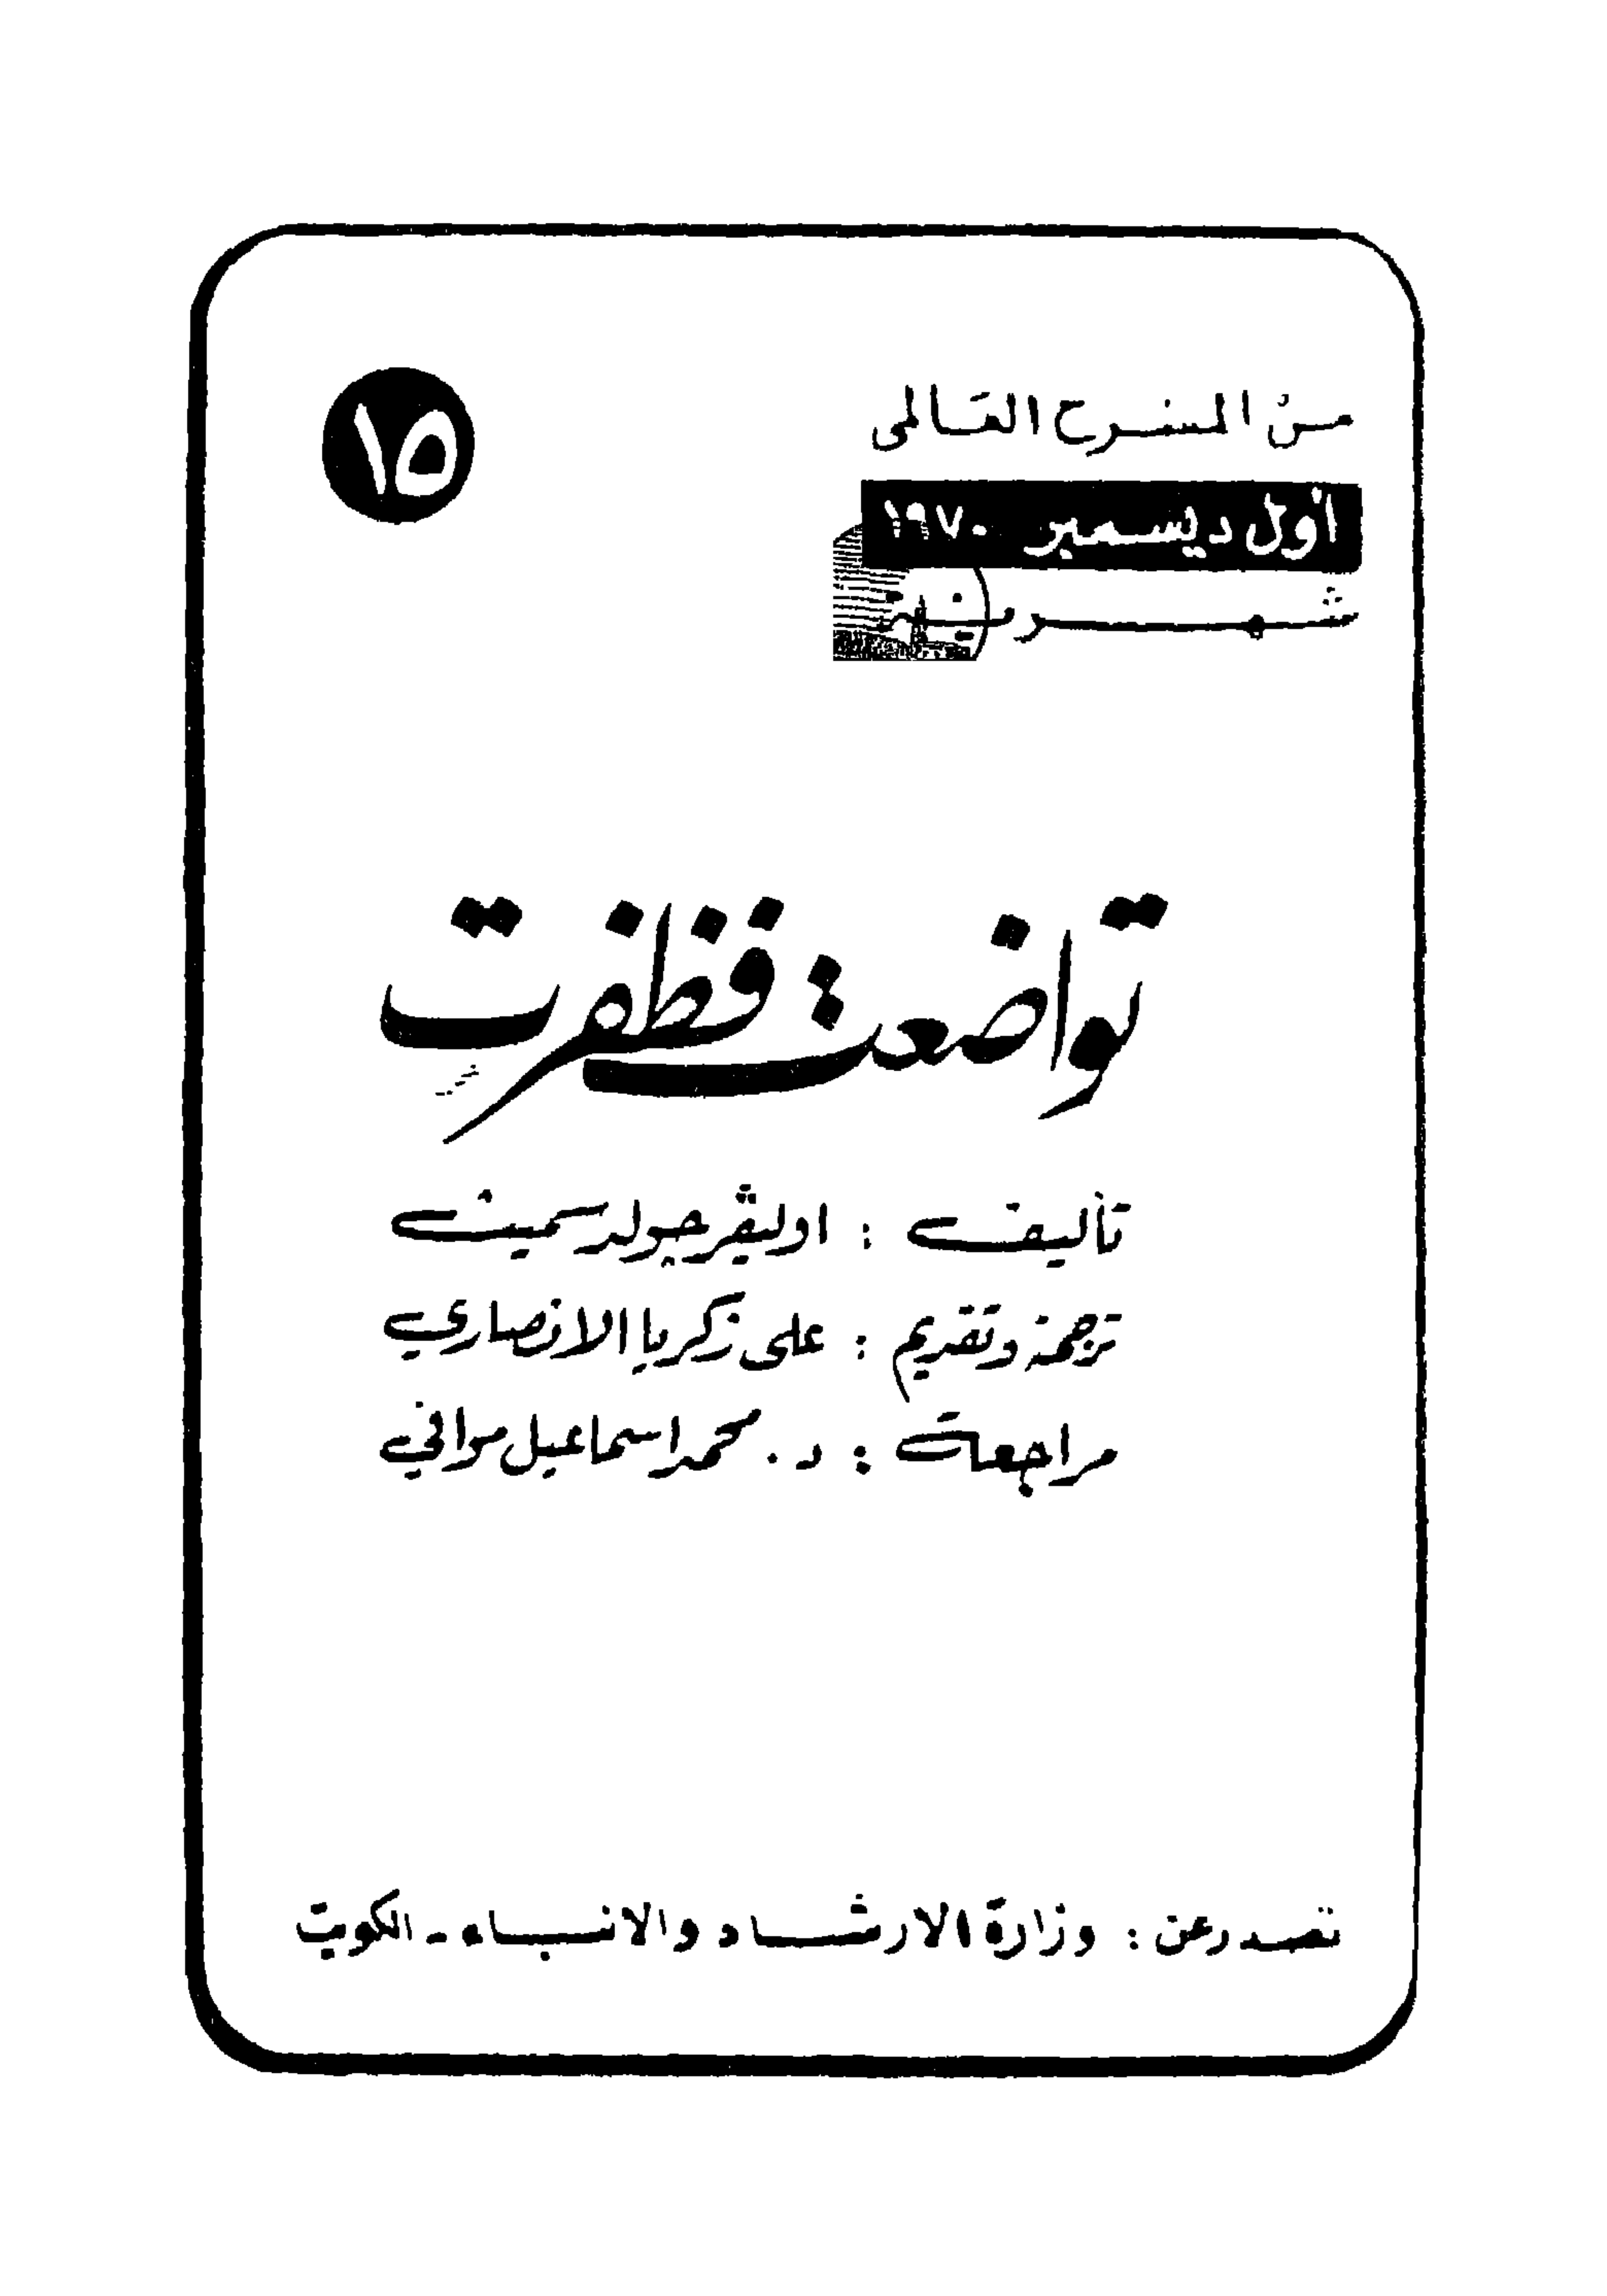 من المسرح العالمى
١٥
أول ديسمبر ١٩٧٠
تواضعت فظفرت
تأليف : اوليڤر جولد سميث
ترجمة وتقديم : على زكريا الانصاري
مراجعة : د. محمد اسماعيل موافي
تصدر عن : وزارة الارشاد والانباء - الكويت